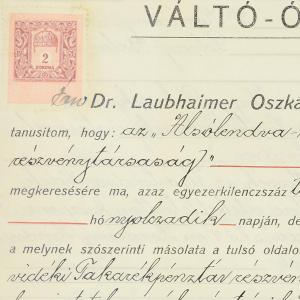 VÁLTÓ-Ó
2
KORONA
Dr. Laubhaimer Oszká
tanusitom, hogy: az „Alsólendva-
részvénytársaság)"
megkeresésére ma, azaz egyezerkilenczszáz
hó nyolczadik napján, de
a melynek szószerinti másolata a tulsó oldalo
vidéki Takarékpénztár részvén